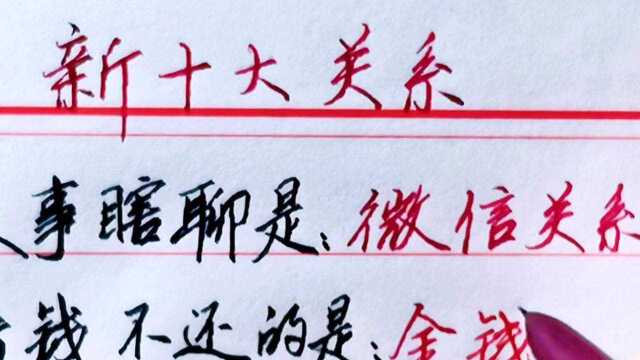 新十大关系
事瞎聊是：微信关系
钱不还的是：金钱